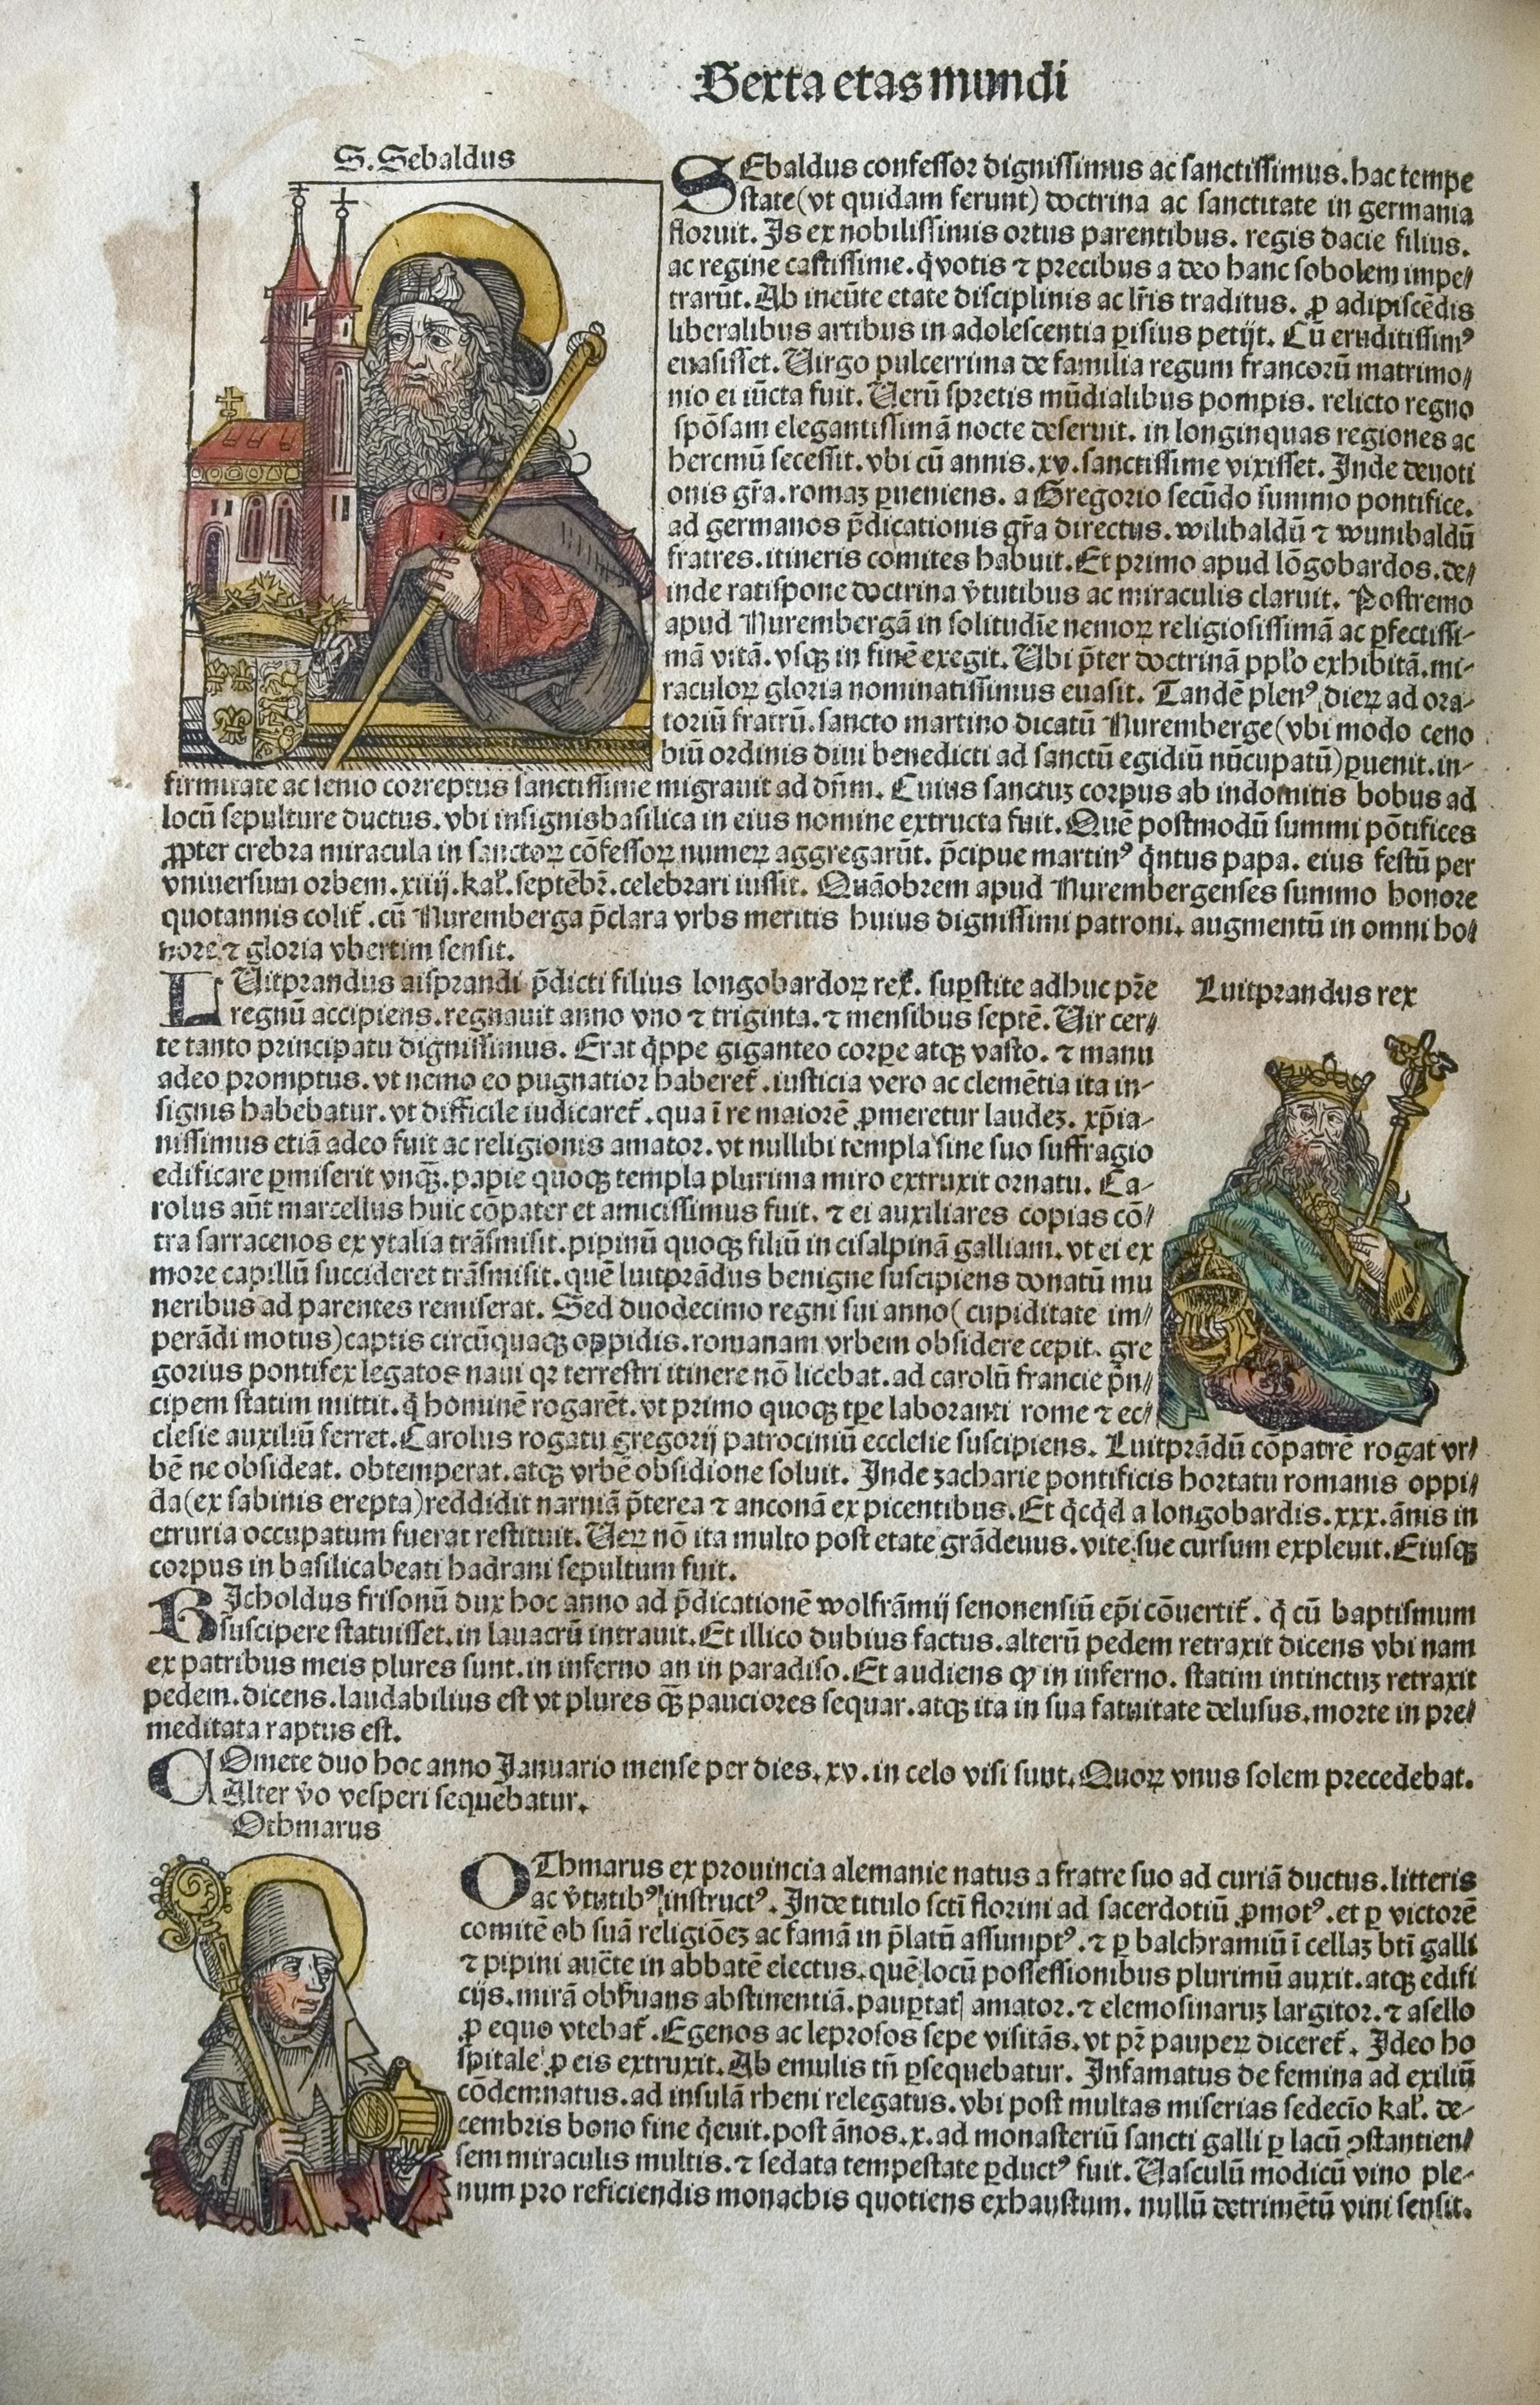 Sexta etas mundi
S. Sebaldus
SEbaldus confessor dignissimus ac sanctissimus. hac tempe
state (vt quidam ferunt) doctrina ac sanctitate in germania
floruit. Is ex nobilissimis ortus parentibus. regis dacie filius.
ac regine castissime. q̃ votis ⁊ precibus a deo hanc sobolem impe/
trarūt. Ab ineūte etate disciplinis ac lr̄is traditus. ꝓ adipiscēdis
liberalibus artibus in adolescentia ꝑisius petijt. Cū eruditissimꝰ
euasisset. Virgo pulcerrima de familia regum francorū matrimo/
nio ei iūcta fuit. Verū spretis mūdialibus pompis. relicto regno
spōsam elegantissimā nocte deseruit. in longinquas regiones ac
heremū secessit. vbi cū annis .xv. sanctissime vixisset. Inde deuoti
onis gr̄a. romaʒ ꝑueniens. a Gregorio secūdo summo pontifice.
ad germanos p̄dicationis gr̄a directus. wilibaldū ⁊ wunibaldū
fratres. itineris comites habuit. Et primo apud lōgobardos. de/
inde ratispone doctrina v̄tutibus ac miraculis claruit. Postremo
apud Nurembergā in solitudīe nemoꝝ religiosissimā ac ꝑfectissi-
mā vitā. vsqꝫ in finē exegit. Vbi p̄ter doctrinā ppl'o exhibitā. mi-
raculoꝝ gloria nominatissimus euasit. Tandē plenꝰ dieꝝ ad ora-
toriū fratrū. sancto martino dicatū Nuremberge (vbi modo ceno
biū ordinis diui benedicti ad sanctū egidiū nūcupatū) ꝑuenit. in-
firmitate ac senio correptus sanctissime migrauit ad dn̄m. Cuius sanctuʒ corpus ab indomitis bobus ad
locū sepulture ductus. vbi insignis basilica in eius nomine extructa fuit. Quē postmodū summi pōtifices
ꝓpter crebra miracula in sanctoꝝ cōfessoꝝ numeꝝ aggregarūt. p̄cipue martinꝰ q̃ntus papa. eius festū per
vniuersum orbem .xiiij. kal'. septēbr̄. celebrari iussit. Quāobrem apud Nurembergenses summo honore
quotannis colit̃. cū Nuremberga p̄clara vrbs meritis huius dignissimi patroni. augmentū in omni ho/
nore ⁊ gloria vbertim sensit.
Luitprandus rex
LVitprandus aisprandi p̄dicti filius longobardoꝝ rex̃. suꝑstite adhuc pr̄e
regnū accipiens. regnauit anno vno ⁊ triginta. ⁊ mensibus septē. Vir cer/
te tanto principatu dignissimus. Erat q̃ppe giganteo corꝑe atqꝫ vasto. ⁊ manu
adeo promptus. vt nemo eo pugnatior haberet̃. iusticia vero ac clemētia ita in-
signis habebatur. vt difficile iudicaret̃. qua ī re maiorē ꝓmeretur laudeʒ. xp̄ia-
nissimus etiā adeo fuit ac religionis amator. vt nullibi templa sine suo suffragio
edificare ꝑmiserit vnqꝫ̃. papie quoqꝫ templa plurima miro extruxit ornatu. Ca-
rolus aūt marcellus huic cōpater et amicissimus fuit. ⁊ ei auxiliares copias cō/
tra sarracenos ex ytalia trāsmisit. pipinū quoqꝫ filiū in cisalpinā galliam. vt ei ex
more capillū succideret trāsmisit. quē luitprādus benigne suscipiens donatū mu
neribus ad parentes remiserat. Sed duodecimo regni sui anno (cupiditate im/
perādi motus) captis circūquaqꝫ oppidis. romanam vrbem obsidere cepit. gre
gorius pontifex legatos naui qꝛ terrestri itinere nō licebat. ad carolū francie p̄n/
cipem statim mittit. q̃ hominē rogarēt. vt primo quoqꝫ tꝑe laboranti rome ⁊ ec/
clesie auxiliū ferret. Carolus rogatu gregorij patrociniū ecclesie suscipiens. Luitprādū cōpatrē rogat vr/
bē ne obsideat. obtemperat. atqꝫ vrbē obsidione soluit. Inde zacharie pontificis hortatu romanis oppi/
da (ex sabinis erepta) reddidit narniā p̄terea ⁊ anconā ex picentibus. Et q̃cq̃d a longobardis .xxx. ānis in
etruria occupatum fuerat restituit. Veꝝ nō ita multo post etate grādeuus. vite sue cursum expleuit. Eiusqꝫ
corpus in basilica beati hadrani sepultum fuit.
RIcholdus frisonū dux hoc anno ad p̄dicationē wolfrāmij senonensiū ep̄i cōuertit̃. q̃ cū baptismum
suscipere statuisset. in lauacrū intrauit. Et illico dubius factus. alterū pedem retraxit dicens vbi nam
ex patribus meis plures sunt. in inferno an in paradiso. Et audiens ꝙ in inferno. statim intinctuʒ retraxit
pedem. dicens. laudabilius est vt plures qꝫ̃ pauciores sequar. atqꝫ ita in sua fatuitate delusus. morte in pre/
meditata raptus est.
COmete duo hoc anno Januario mense per dies .xv. in celo visi sunt. Quoꝝ vnus solem precedebat.
Alter v̄o vesperi sequebatur.
Othmarus
OThmarus ex prouincia alemanie natus a fratre suo ad curiā ductus. litteris
ac v̄tutibꝰ instructꝰ. Inde titulo sctī florini ad sacerdotiū ꝓmotꝰ. et ꝑ victorē
comitē ob suā religiōeʒ ac famā in p̄latū assumptꝰ. ⁊ ꝑ balchramiū ī cellaʒ btī galli
⁊ pipini auct̄e in abbatē electus. quē locū possessionibus plurimū auxit. atqꝫ edifi
cijs. mirā obṽuans abstinentiā. pauꝑtatꝭ amator. ⁊ elemosinaruʒ largitor. ⁊ asello
ꝓ equo vtebat̃. Egenos ac leprosos sepe visitās. vt pr̄ pauꝑeꝝ diceret̃. Ideo ho
spitale ꝓ eis extruxit. Ab emulis tn̄ ꝑsequebatur. Infamatus de femina ad exiliū
cōdemnatus. ad insulā rheni relegatus. vbi post multas miserias sedecīo kal'. de-
cembris bono fine q̃euit. post ānos .x. ad monasteriū sancti galli ꝑ lacū ꝯstantien/
sem miraculis multis. ⁊ sedata tempestate ꝑductꝰ fuit. Vasculū modicū vino ple-
num pro reficiendis monachis quotiens exhaustum. nullū detrimētū vini sensit.